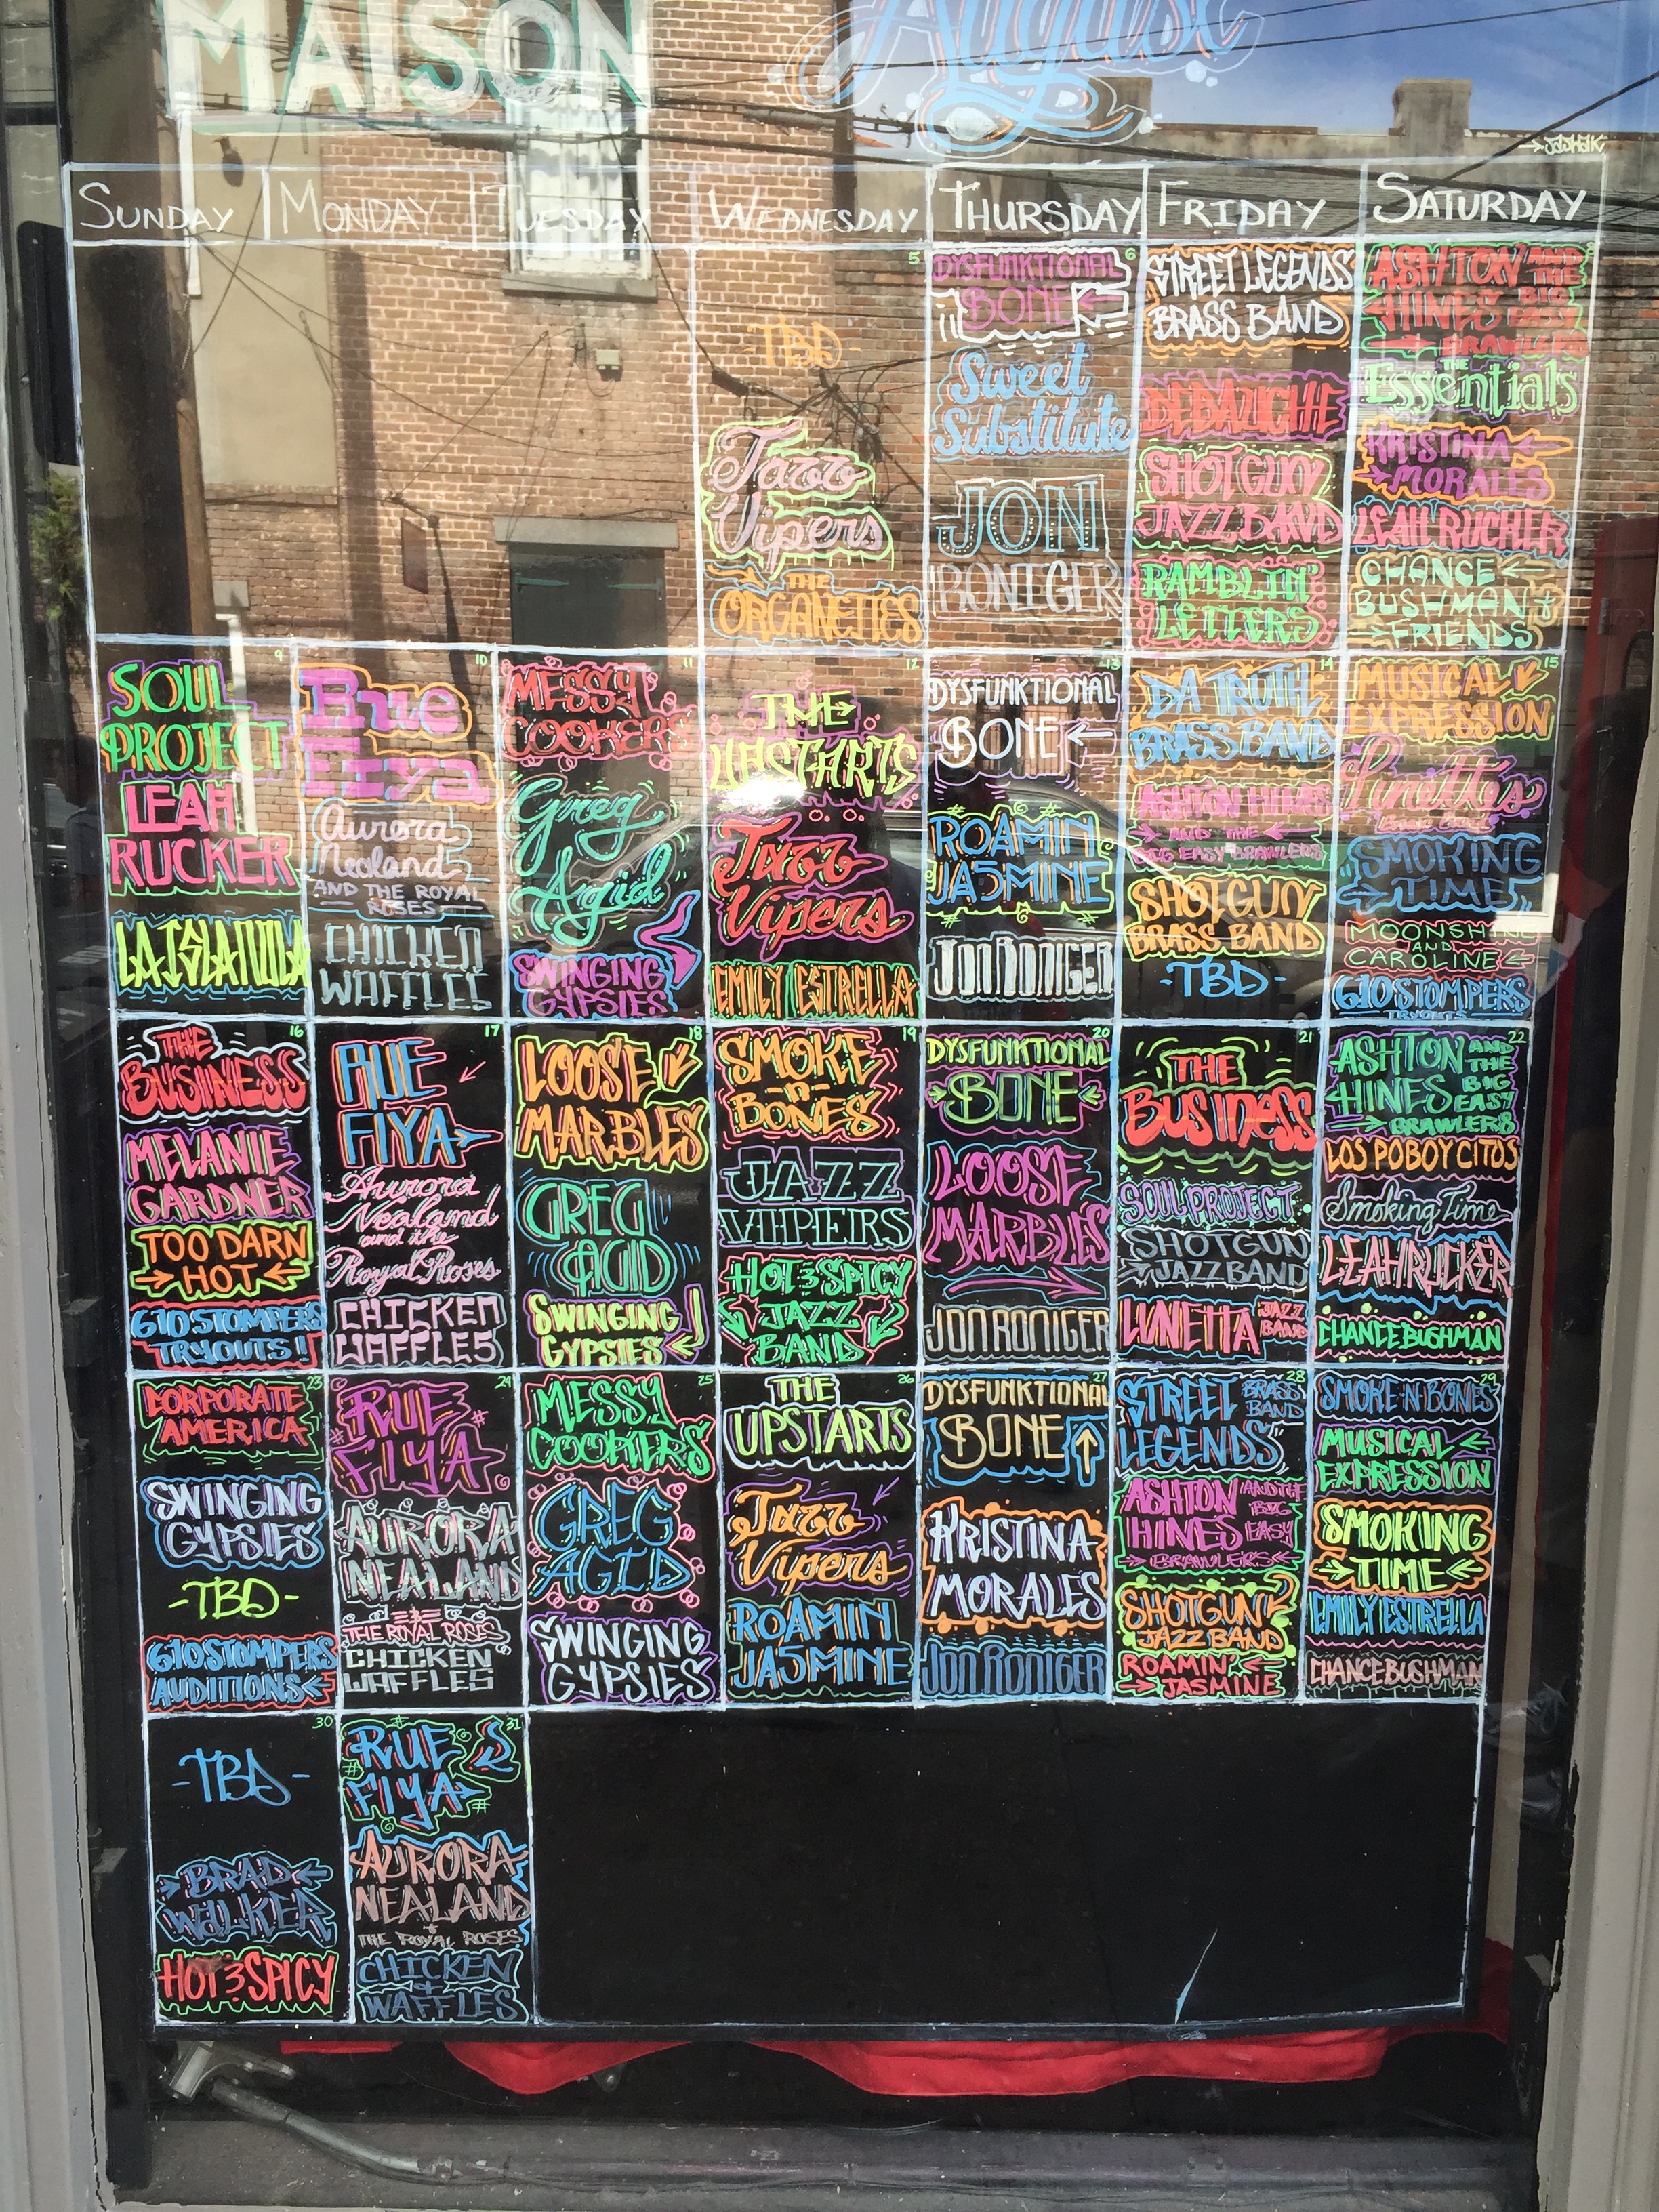 MAISON
August
→JASHAIK
SUNDAY MONDAY TUESDAY WEDNESDAY THURSDAY FRIDAY SATURDAY
5
-TBD-
Jazz
Vipers
THE
ORGANETTES
6
DYSFUNKTIONAL
BONE
Sweet
Substitute
JON
RONIGER
STREET LEGENDS
BRASS BAND
DEBAUCHE
SHOTGUN
JAZZ BAND
RAMBLIN'
LETTERS
8
ASHTON AND THE
HINES BIG EASY
BRAWLERS
THE
Essentials
KRISTINA
MORALES
LEAH RUCHER
CHANCE
BUSHMAN +
FRIENDS
9
SOUL
PROJECT
LEAH
RUCKER
10
Rue
Fiya
Aurora
Nealand
AND THE ROYAL
ROSES
CHICKEN
WAFFLES
11
MESSY
COOKERS
Greg
Agid
SWINGING
GYPSIES
12
THE
UPSTARTS
Jazz
Vipers
EMILY ESTRELLA
13
DYSFUNKTIONAL
BONE
ROAMIN
JASMINE
JON RONIGER
14
DA TRUTH
BRASS BAND
ASHTON HINES
AND THE
BIG EASY BRAWLERS
SHOTGUN
BRASS BAND
-TBD-
15
MUSICAL
EXPRESSION
Pinettes
SMOKING
TIME
MOONSHINE
AND
CAROLINE
610 STOMPERS
TRYOUTS
16
THE
BUSINESS
MELANIE
GARDNER
TOO DARN
HOT
610 STOMPERS
TRYOUTS!
17
RUE
FIYA
Aurora
Nealand
and the
Royal Roses
CHICKEN
WAFFLES
18
LOOSE
MARBLES
GREG
AGID
SWINGING
GYPSIES
19
SMOKE
-N-
BONES
JAZZ
VIPERS
HOT & SPICY
JAZZ
BAND
20
DYSFUNKTIONAL
BONE
LOOSE
MARBLES
JON RONIGER
21
THE
BUSINESS
SOUL PROJECT
SHOTGUN
JAZZ BAND
LUNETTA JAZZ BAND
22
ASHTON AND THE
HINES BIG EASY
BRAWLERS
LOS POBOYCITOS
Smoking Time
LEAH RUCKER
CHANCE BUSHMAN
23
CORPORATE
AMERICA
SWINGING
GYPSIES
-TBD-
610 STOMPERS
AUDITIONS
24
RUE
FIYA
AURORA
NEALAND
THE ROYAL ROSES
CHICKEN
WAFFLES
25
MESSY
COOKERS
GREG
AGID
SWINGING
GYPSIES
26
THE
UPSTARTS
Jazz
Vipers
ROAMIN
JASMINE
27
DYSFUNKTIONAL
BONE
KRISTINA
MORALES
JON RONIGER
28
STREET BRASS BAND
LEGENDS
ASHTON AND THE
HINES BIG EASY
BRAWLERS
SHOTGUN
JAZZ BAND
ROAMIN'
JASMINE
29
SMOKE N BONES
MUSICAL
EXPRESSION
SMOKING
TIME
EMILY ESTRELLA
CHANCE BUSHMAN
30
-TBD-
BRAD
WALKER
HOT & SPICY
31
RUE
FIYA
AURORA
NEALAND
+
THE ROYAL ROSES
CHICKEN
+
WAFFLES